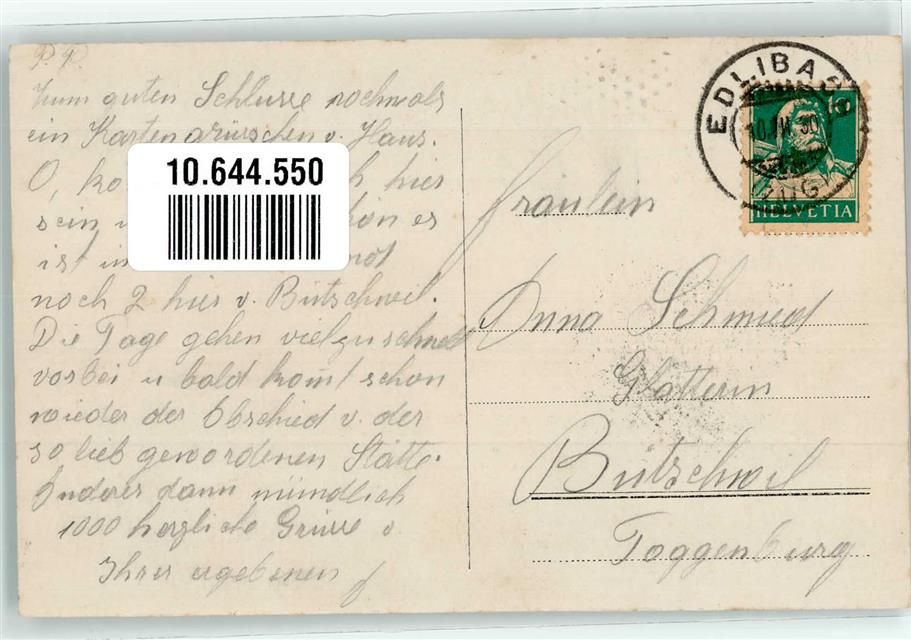 P.P.
Zum guten Schlusse nochmals
ein Kartengrüsschen v. Haus.
O, hier
sein es
ist
noch 2 hier v. Bütschwil.
Die Tage gehen viel zu schnell
vorbei u bald komt schon
wieder der Abschied v. der
so lieb gewordenen Stätte.
Anderes dann mündlich
1000 herzliche Grüsse v
Ihrer ergebenen
10.644.550
EDLIBACH
ZUG
HELVETIA
Fräulein
Anna Schmied
Glätterin
Bütschwil
Toggenburg